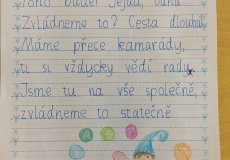 Zvládneme to? Cesta dlouhá.
Máme přece kamarády,
ti si vždycky vědí rady.
Jsme tu na vše společně,
zvládneme to statečně